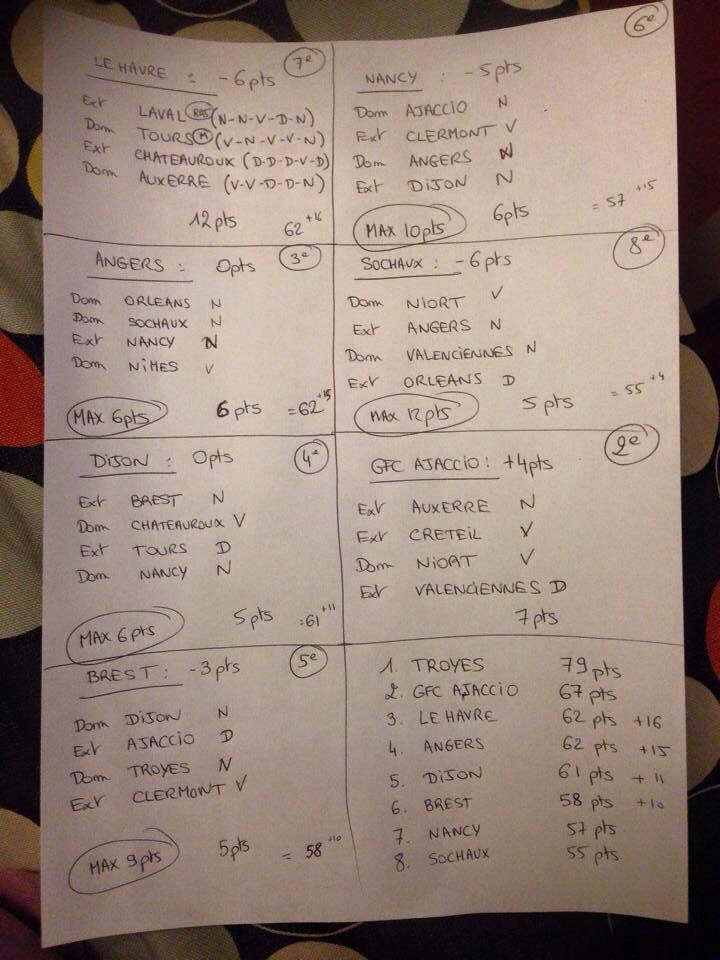 LE HAVRE : -6pts 7e
Ext LAVAL (N-N-V-D-N)
Dom TOURS M (V-N-V-V-N)
Ext CHATEAUROUX (D-D-D-V-D)
Dom AUXERRE (V-V-D-D-N)
12pts 62 +16
NANCY : -5pts 6e
Dom AJACCIO N
Ext CLERMONT V
Dom ANGERS N
Ext DIJON N
MAX 10pts 6pts = 57 +15
ANGERS : 0pts 3e
Dom ORLEANS N
Dom SOCHAUX N
Ext NANCY N
Dom NÎMES V
MAX 6pts 6pts = 62 +15
SOCHAUX : -6pts 8e
Dom NIORT V
Ext ANGERS N
Dom VALENCIENNES N
Ext ORLEANS D
MAX 12pts 5pts = 55 +4
DIJON : 0pts 4e
Ext BREST N
Dom CHATEAUROUX V
Ext TOURS D
Dom NANCY N
MAX 6pts 5pts = 61 +11
GFC AJACCIO : +4pts 2e
Ext AUXERRE N
Ext CRETEIL V
Dom NIORT V
Ext VALENCIENNES D
7pts
BREST : -3pts 5e
Dom DIJON N
Ext AJACCIO D
Dom TROYES N
Ext CLERMONT V
MAX 9pts 5pts = 58 +10
1. TROYES 79pts
2. GFC AJACCIO 67pts
3. LE HAVRE 62 pts +16
4. ANGERS 62 pts +15
5. DIJON 61 pts +11
6. BREST 58 pts +10
7. NANCY 57pts
8. SOCHAUX 55pts